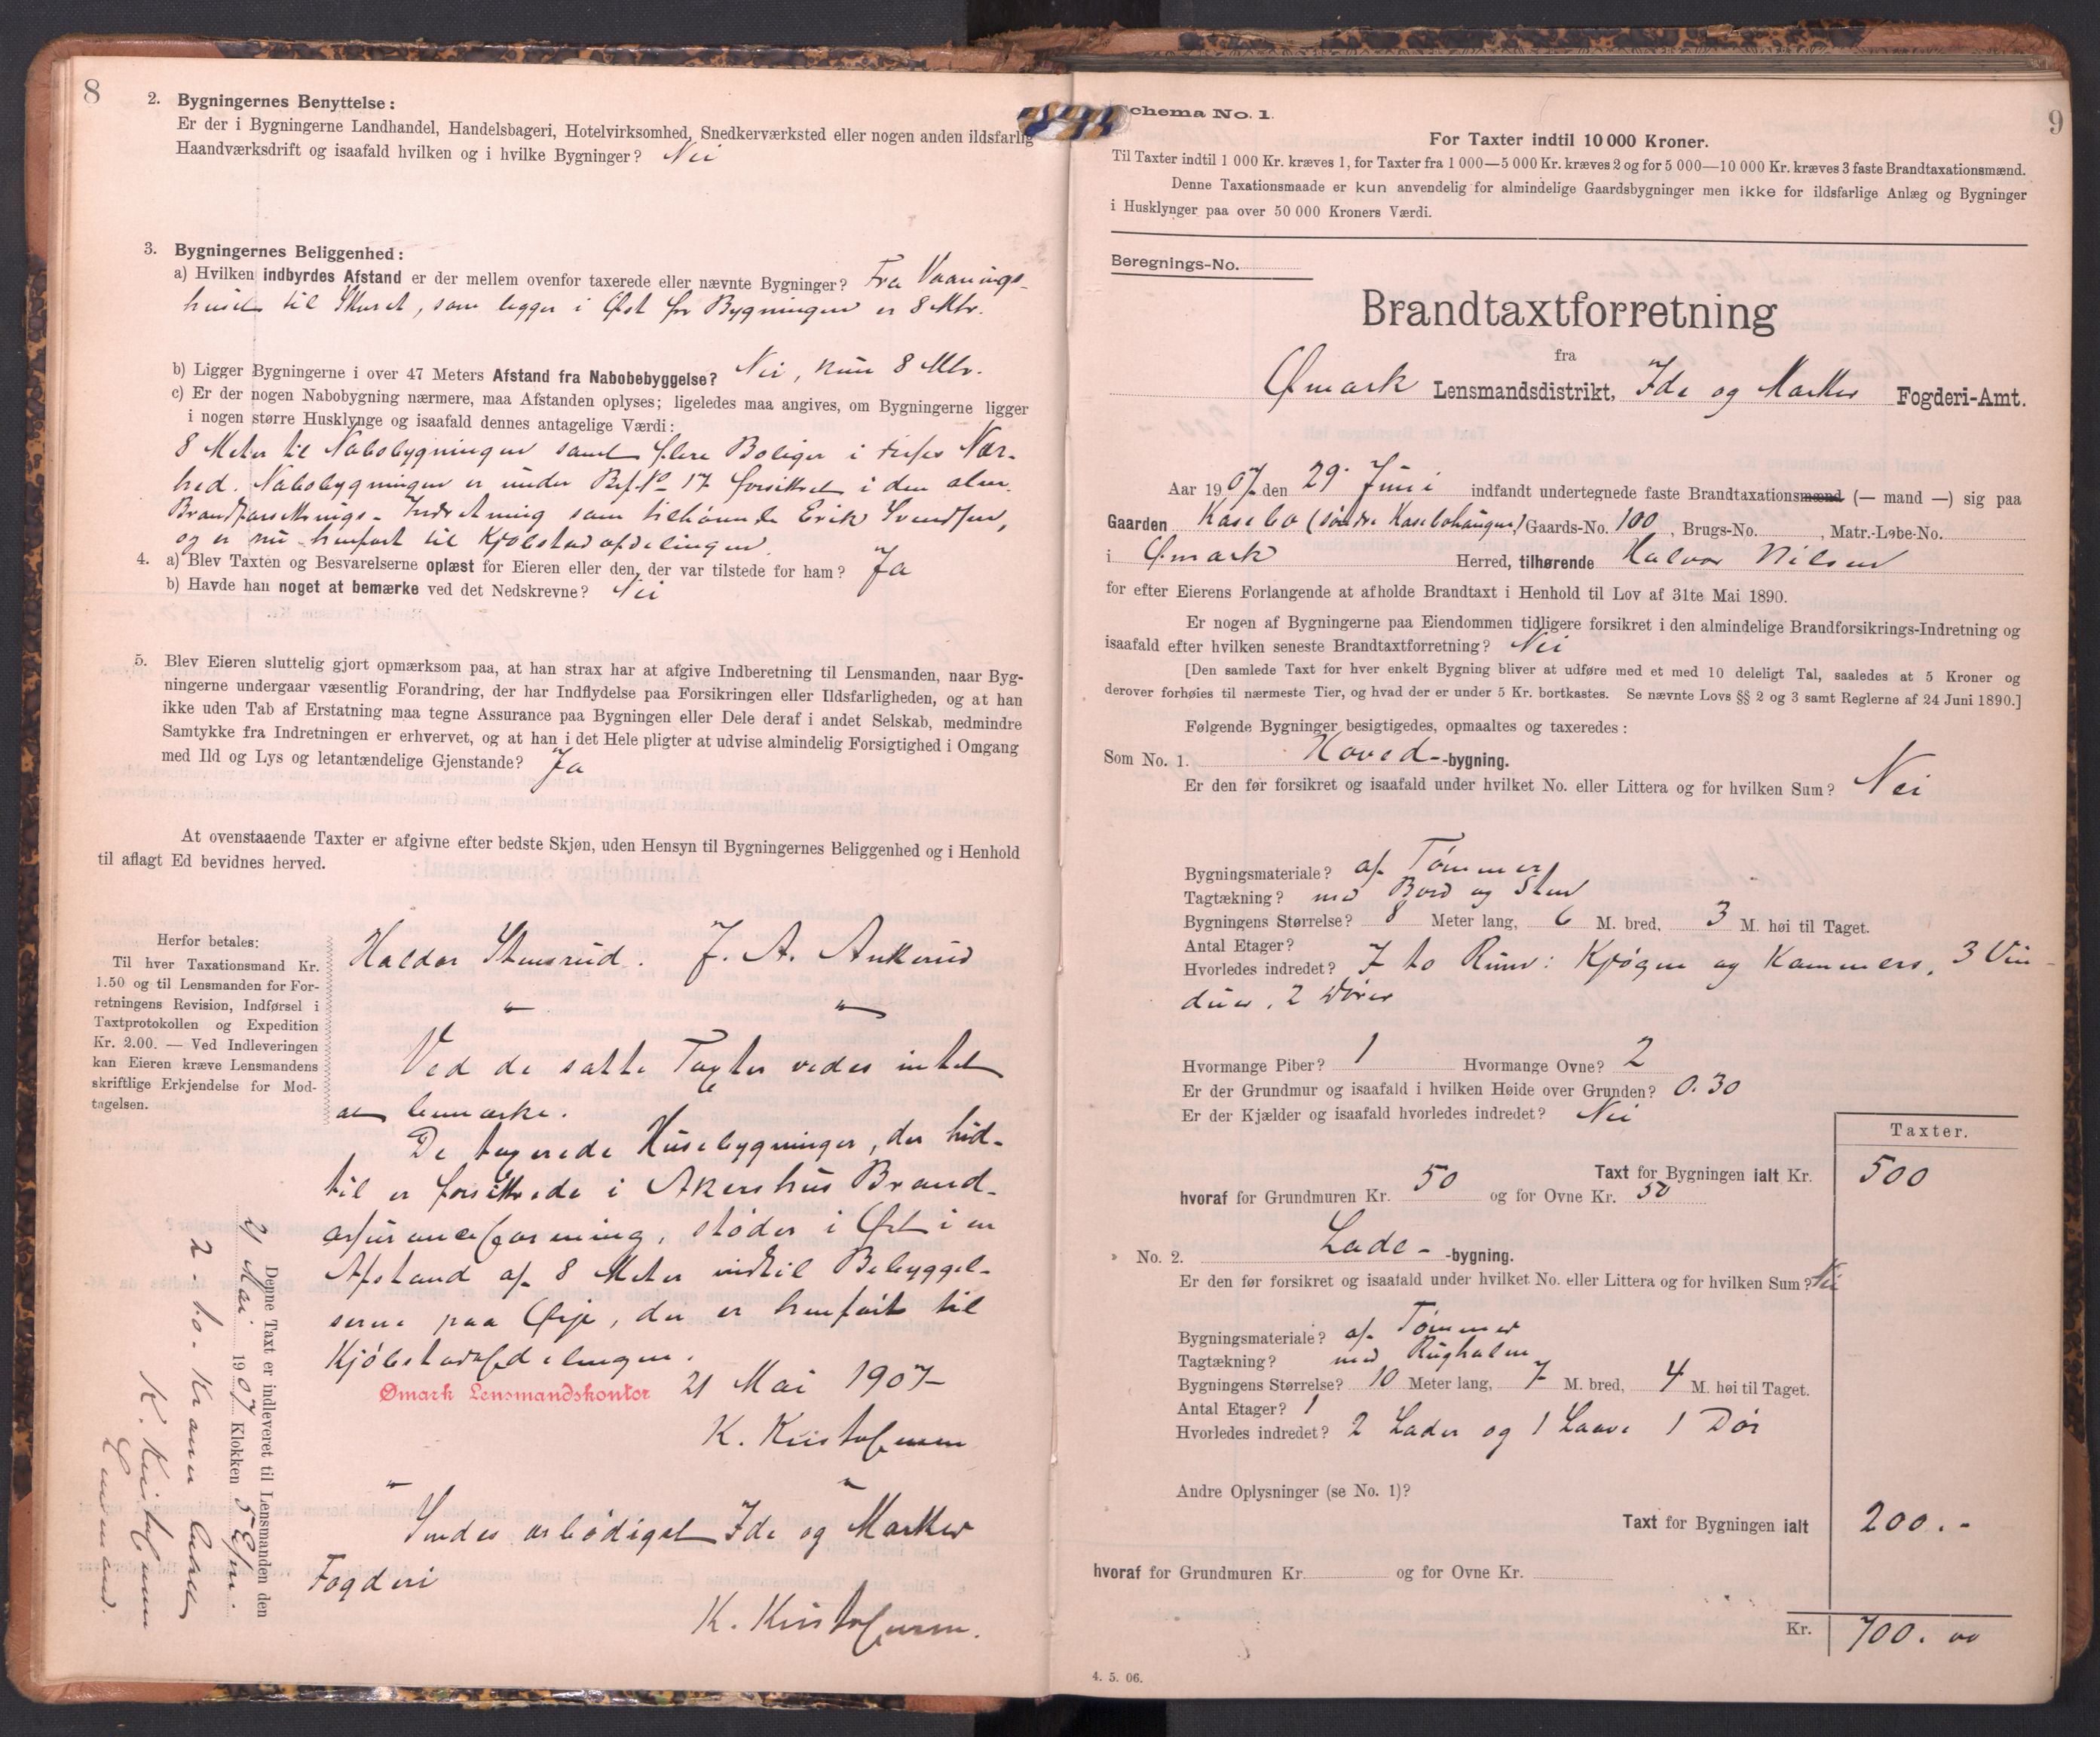 8
2. Bygningernes Benyttelse:
Er der i Bygningerne Landhandel, Handelsbageri, Hotelvirksomhed, Snedkerværksted eller nogen anden ildsfarlig
Haandværksdrift og isaafald hvilken og i hvilke Bygninger? Nei
3. Bygningernes Beliggenhed:
a) Hvilken indbyrdes Afstand er der mellem ovenfor taxerede eller nævnte Bygninger? Fra Vaanings-
huset til Skuret, som ligger i Øst for Bygningen er 8 Mtr.
b) Ligger Bygningerne i over 47 Meters Afstand fra Nabobebyggelse? Nei, kun 8 Mtr.
c) Er der nogen Nabobygning nærmere, maa Afstanden oplyses; ligeledes maa angives, om Bygningerne ligger
i nogen større Husklynge og isaafald dennes antagelige Værdi:
8 Meter til Nabobygningen samt flere Boliger i deres Nær-
hed. Nabobygningen er under Bef. No 17 forsikret i den alm.
Brandforsikrings-Indretning som tilhørende Erik Svendsen,
og er nu henført til Kjøbstadafdelingen.
4. a) Blev Taxten og Besvarelserne oplæst for Eieren eller den, der var tilstede for ham? Ja
b) Havde han noget at bemærke ved det Nedskrevne? Nei
5. Blev Eieren sluttelig gjort opmærksom paa, at han strax har at afgive Indberetning til Lensmanden, naar Byg-
ningerne undergaar væsentlig Forandring, der har Indflydelse paa Forsikringen eller Ildsfarligheden, og at han
ikke uden Tab af Erstatning maa tegne Assurance paa Bygningen eller Dele deraf i andet Selskab, medmindre
Samtykke fra Indretningen er erhvervet, og at han i det Hele pligter at udvise almindelig Forsigtighed i Omgang
med Ild og Lys og letantændelige Gjenstande? Ja
At ovenstaaende Taxter er afgivne efter bedste Skjøn, uden Hensyn til Bygningernes Beliggenhed og i Henhold
til aflagt Ed bevidnes herved.
Herfor betales:
Til hver Taxationsmand Kr.
1.50 og til Lensmanden for For-
retningens Revision, Indførsel i
Taxtprotokollen og Expedition
Kr. 2.00. — Ved Indleveringen
kan Eieren kræve Lensmandens
skriftlige Erkjendelse for Mod-
tagelsen.
Haldor Stensrud. J. A. Ankerud
Ved de satte Taxter vides intet
at bemærke.
De taxerede Husebygninger, der hid-
til er forsikrede i Akershus Brand-
assuranceforening, støder i Øst i en
Afstand af 8 Meter indtil Bebyggel-
serne paa Ørje, der er henført til
Kjøbstadafdelingen.
Ømark Lensmandskontor 21 Mai 1907
K. Kristofersen
Sendes ærbødigst Ide og Marker
Fogderi
K. Kristofersen.
Denne Taxt er indleveret til Lensmanden den
21 Mai 1907 Klokken 5 Efm.
2 - to - Kroner betalt
K. Kristofersen
Lensmand.
9
Schema No. 1.
For Taxter indtil 10 000 Kroner.
Til Taxter indtil 1 000 Kr. kræves 1, for Taxter fra 1 000—5 000 Kr. kræves 2 og for 5 000—10 000 Kr. kræves 3 faste Brandtaxationsmænd.
Denne Taxationsmaade er kun anvendelig for almindelige Gaardsbygninger men ikke for ildsfarlige Anlæg og Bygninger
i Husklynger paa over 50 000 Kroners Værdi.
Beregnings-No.
Brandtaxtforretning
fra
Ømark Lensmandsdistrikt, Ide og Marker Fogderi-Amt.
Aar 1907 den 29. Juni indfandt undertegnede faste Brandtaxationsmænd (— mand —) sig paa
Gaarden Kasebo (søndre Kasebohaugen) Gaards-No. 100, Brugs-No. , Matr.-Løbe-No.
i Ømark Herred, tilhørende Halvor Nilsen
for efter Eierens Forlangende at afholde Brandtaxt i Henhold til Lov af 31te Mai 1890.
Er nogen af Bygningerne paa Eiendommen tidligere forsikret i den almindelige Brandforsikrings-Indretning og
isaafald efter hvilken seneste Brandtaxtforretning? Nei
[Den samlede Taxt for hver enkelt Bygning bliver at udføre med et med 10 deleligt Tal, saaledes at 5 Kroner og
derover forhøies til nærmeste Tier, og hvad der er under 5 Kr. bortkastes. Se nævnte Lovs §§ 2 og 3 samt Reglerne af 24 Juni 1890.]
Følgende Bygninger besigtigedes, opmaaltes og taxeredes:
Som No. 1. Hoved- -bygning.
Er den før forsikret og isaafald under hvilket No. eller Littera og for hvilken Sum? Nei
Bygningsmateriale? af Tømmer
Tagtækning? med Bord og Sten
Bygningens Størrelse? 8 Meter lang, 6 M. bred, 3 M. høi til Taget.
Antal Etager?
Hvorledes indredet? I to Rum: Kjøgen og Kammers, 3 Vin-
duer, 2 Dører
Hvormange Piber? 1 Hvormange Ovne? 2
Er der Grundmur og isaafald i hvilken Høide over Grunden? 0.30
Er der Kjælder og isaafald hvorledes indredet? Nei
Taxter.
Taxt for Bygningen ialt Kr. 500
hvoraf for Grundmuren Kr. 50 og for Ovne Kr. 50
No. 2. Lade- -bygning.
Er den før forsikret og isaafald under hvilket No. eller Littera og for hvilken Sum? Nei
Bygningsmateriale? af Tømmer
Tagtækning? med Rughalm
Bygningens Størrelse? 10 Meter lang, 7 M. bred, 4 M. høi til Taget.
Antal Etager? 1
Hvorledes indredet? 2 Lader og 1 Laave 1 Dør
Andre Oplysninger (se No. 1)?
Taxt for Bygningen ialt 200.-
hvoraf for Grundmuren Kr. og for Ovne Kr.
Kr. 700.00
4. 5. 06.